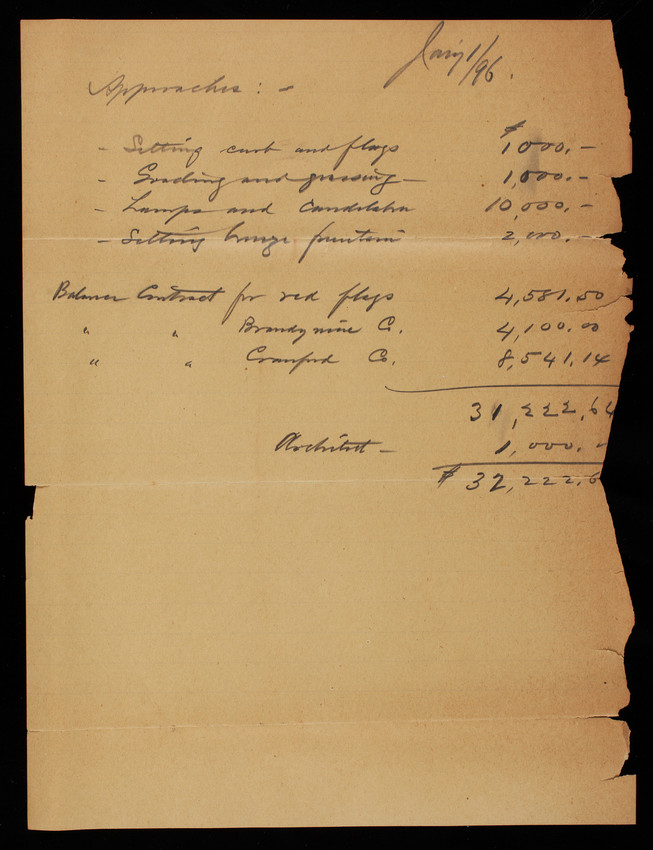 Jany 1/96.
Approaches: -
- Setting curb and flags $1000.-
- Grading and grassing - 1,000.-
- Lamps and Candelabra 10,000.-
- Setting bronze fountain 2,000.-
Balance Contract for red flags 4,581.50
" " Brandywine Co. 4,100.00
" " Cranford Co. 8,541.14
31,222.64
Architect - 1,000.-
$32,222.6